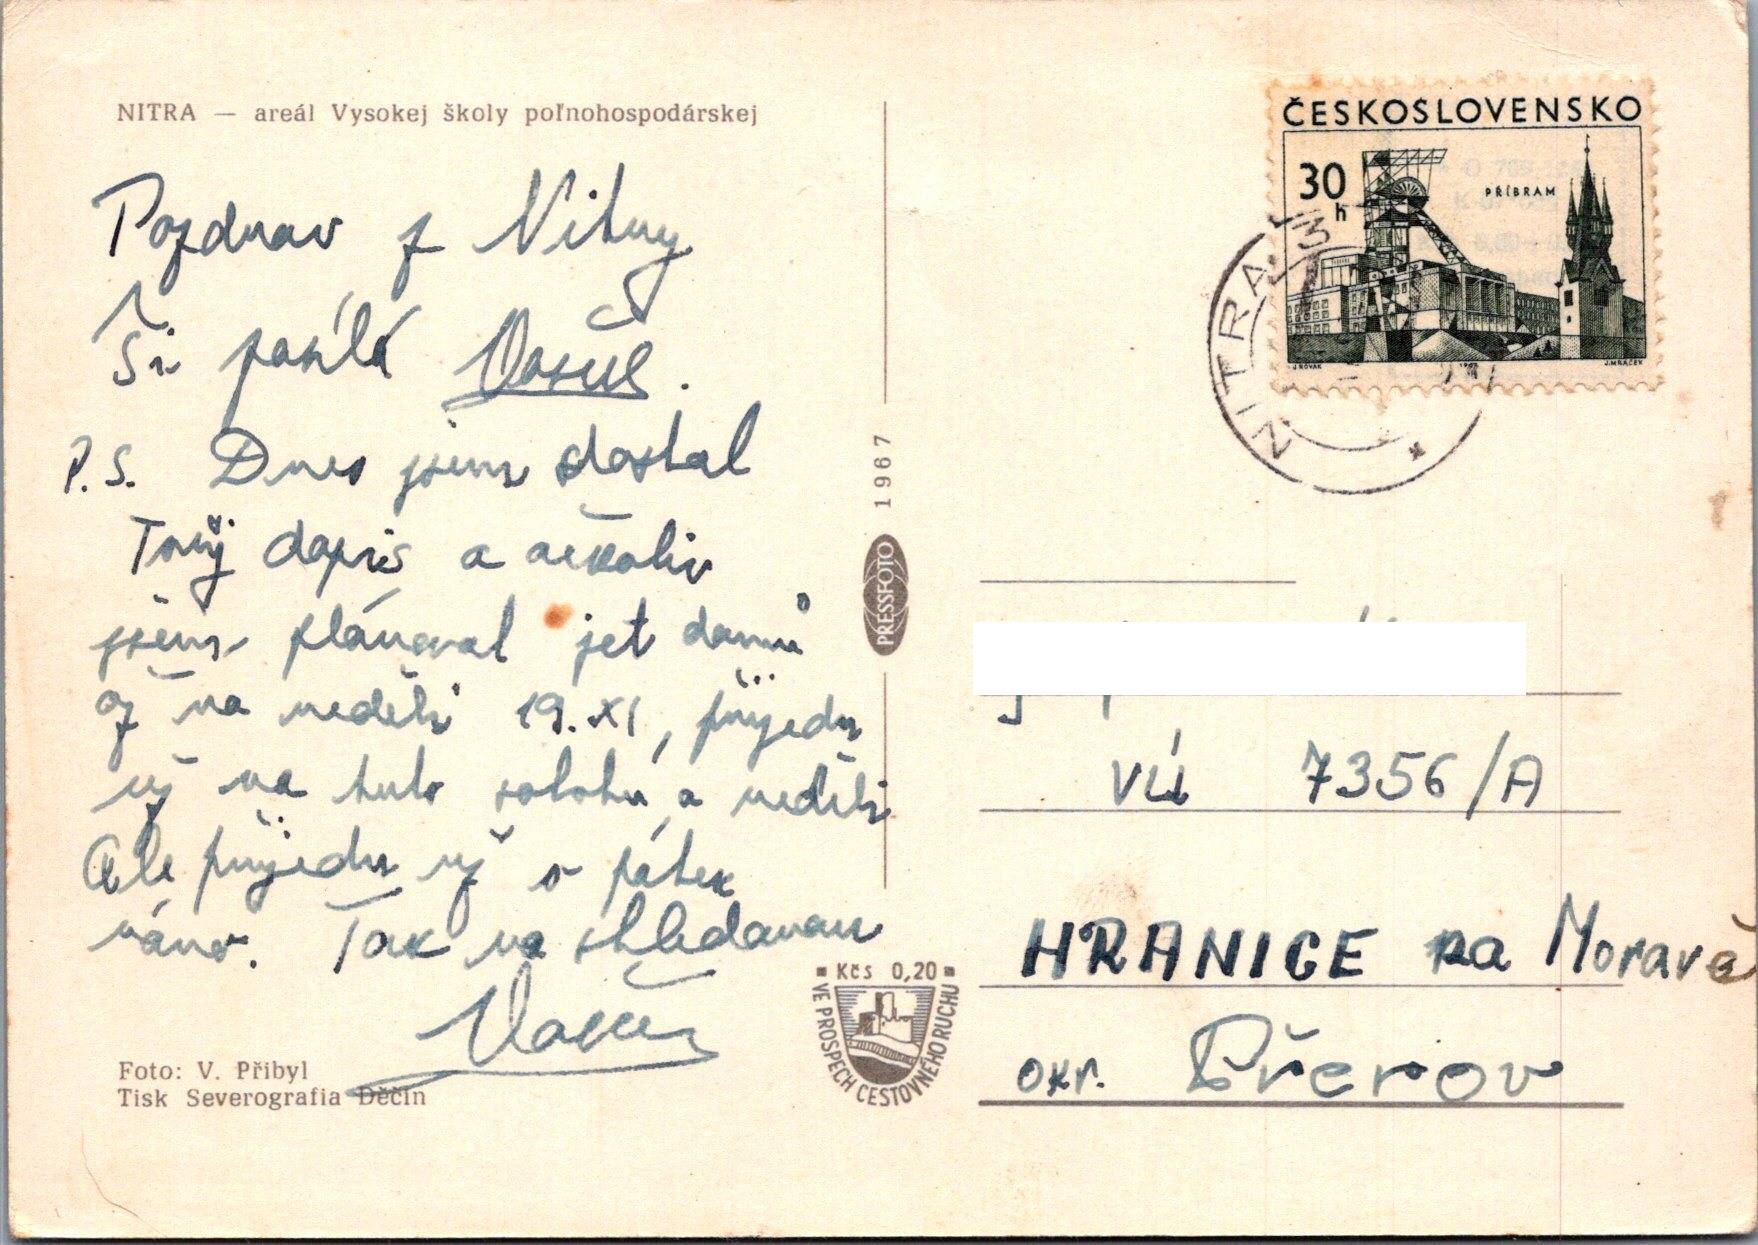 NITRA — areál Vysokej školy poľnohospodárskej
Pozdrav z Nitry
Ti posílá
P.S. Dnes jsem dostal
Tvůj dopis a ačkoliv
jsem plánoval jet domů
až na neděli 19.XI, přijedu
už na tuto sobotu a neděli
Ale přijedu už v pátek
ráno. Tak na shledanou
Foto: V. Přibyl
Tisk Severografia Děčín
1967
PRESSFOTO
Kčs 0,20
VE PROSPĚCH CESTOVNÉHO RUCHU
ČESKOSLOVENSKO
30 h
PŘÍBRAM
J. NOVÁK 1967 J. MRÁČEK
NITRA 3
VÚ 7356/A
HRANICE na Moravě
okr. Přerov